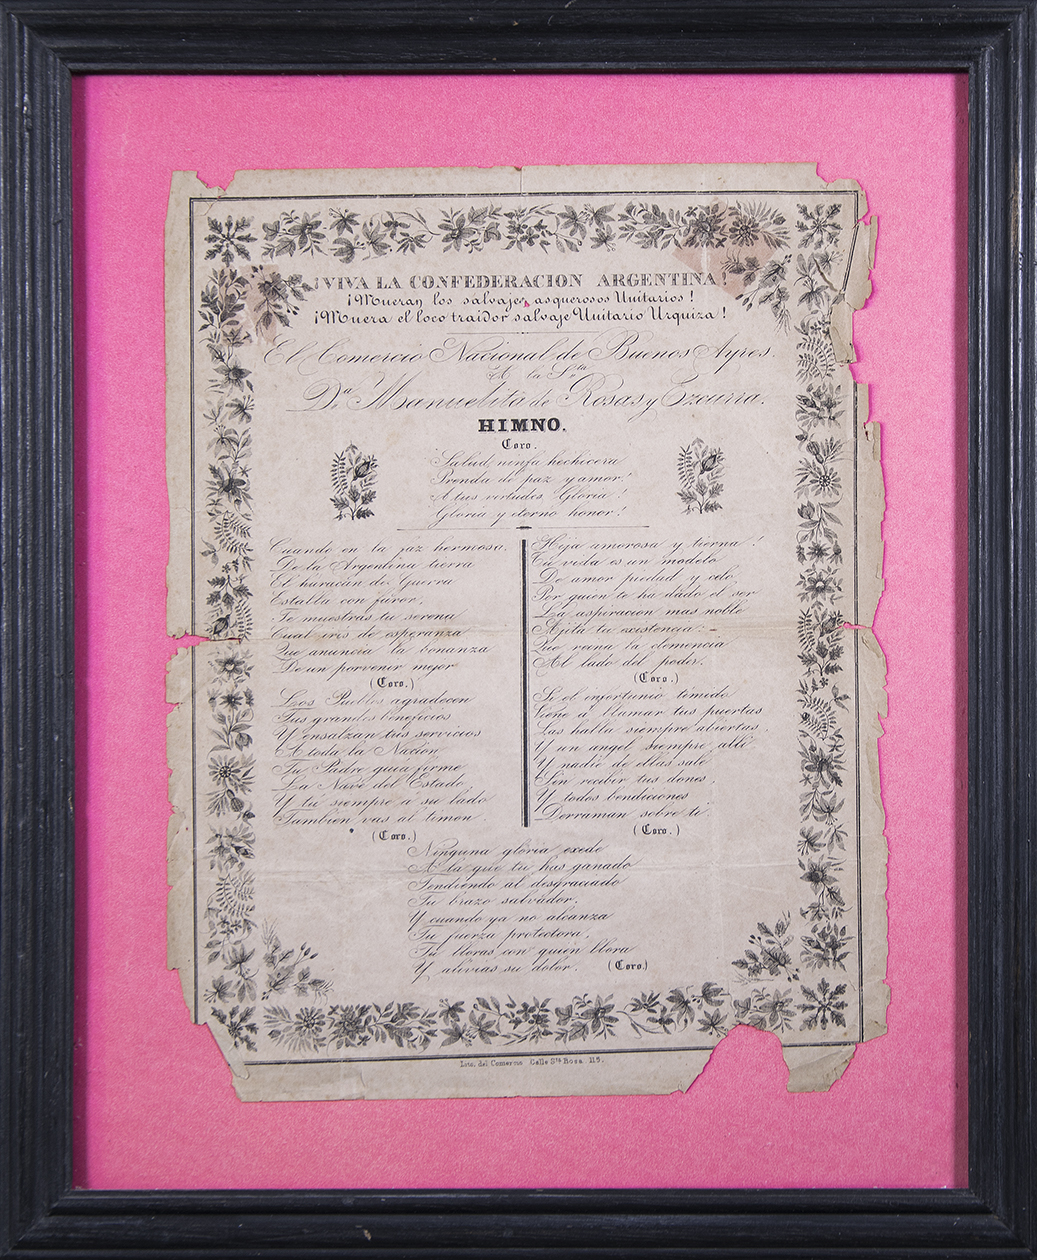 ¡VIVA LA CONFEDERACION ARGENTINA!
¡Mueran los salvajes asquerosos Unitarios!
¡Muera el loco traidor salvaje Unitario Urquiza!
El Comercio Nacional de Buenos Ayres.
A la Srta
Da Manuelita de Rosas y Ezcurra.
HIMNO.
Coro.
Salud, ninfa hechicera
Prenda de paz y amor!
A tus virtudes Gloria!
Gloria y eterno honor!
Cuando en la paz hermosa.
De la Argentina tierra
El huracán de Guerra
Estalla con furor,
Te muestras tu serena
Cual iris de esperanza
Que anuncia la bonanza
De un porvenir mejor
(Coro.)
Loos Pueblos agradecen
Tus grandes beneficios
Y ensalzan tus servicios
A toda la Nacion
Tu Padre guia firme
La Nave del Estado
Y tu siempre á su lado
Tambien vas al timon.
(Coro.)
Hija amorosa y tierna!
Tu vida es un modelo
De amor piedad y celo,
Por quien te ha dado el ser
La aspiracion mas noble
Ajita tu existencia:
Que reina la clemencia
Al lado del poder.
(Coro.)
Si el infortunio timido
Viene a llamar tus puertas
Las halla siempre abiertas.
Y un angel siempre allí
Y nadie de ellas sale
Sin recibir tus dones,
Y todos bendiciones
Derraman sobre ti.
(Coro.)
Ninguna gloria excede
A la que tu has ganado
Tendiendo al desgraciado
Tu brazo salvador,
Y cuando ya no alcanza
Tu fuerza protectora,
Tu lloras con quien llora
Y alivias su dolor. (Coro.)
Lito. del Comercio Calle Sta Rosa 115.